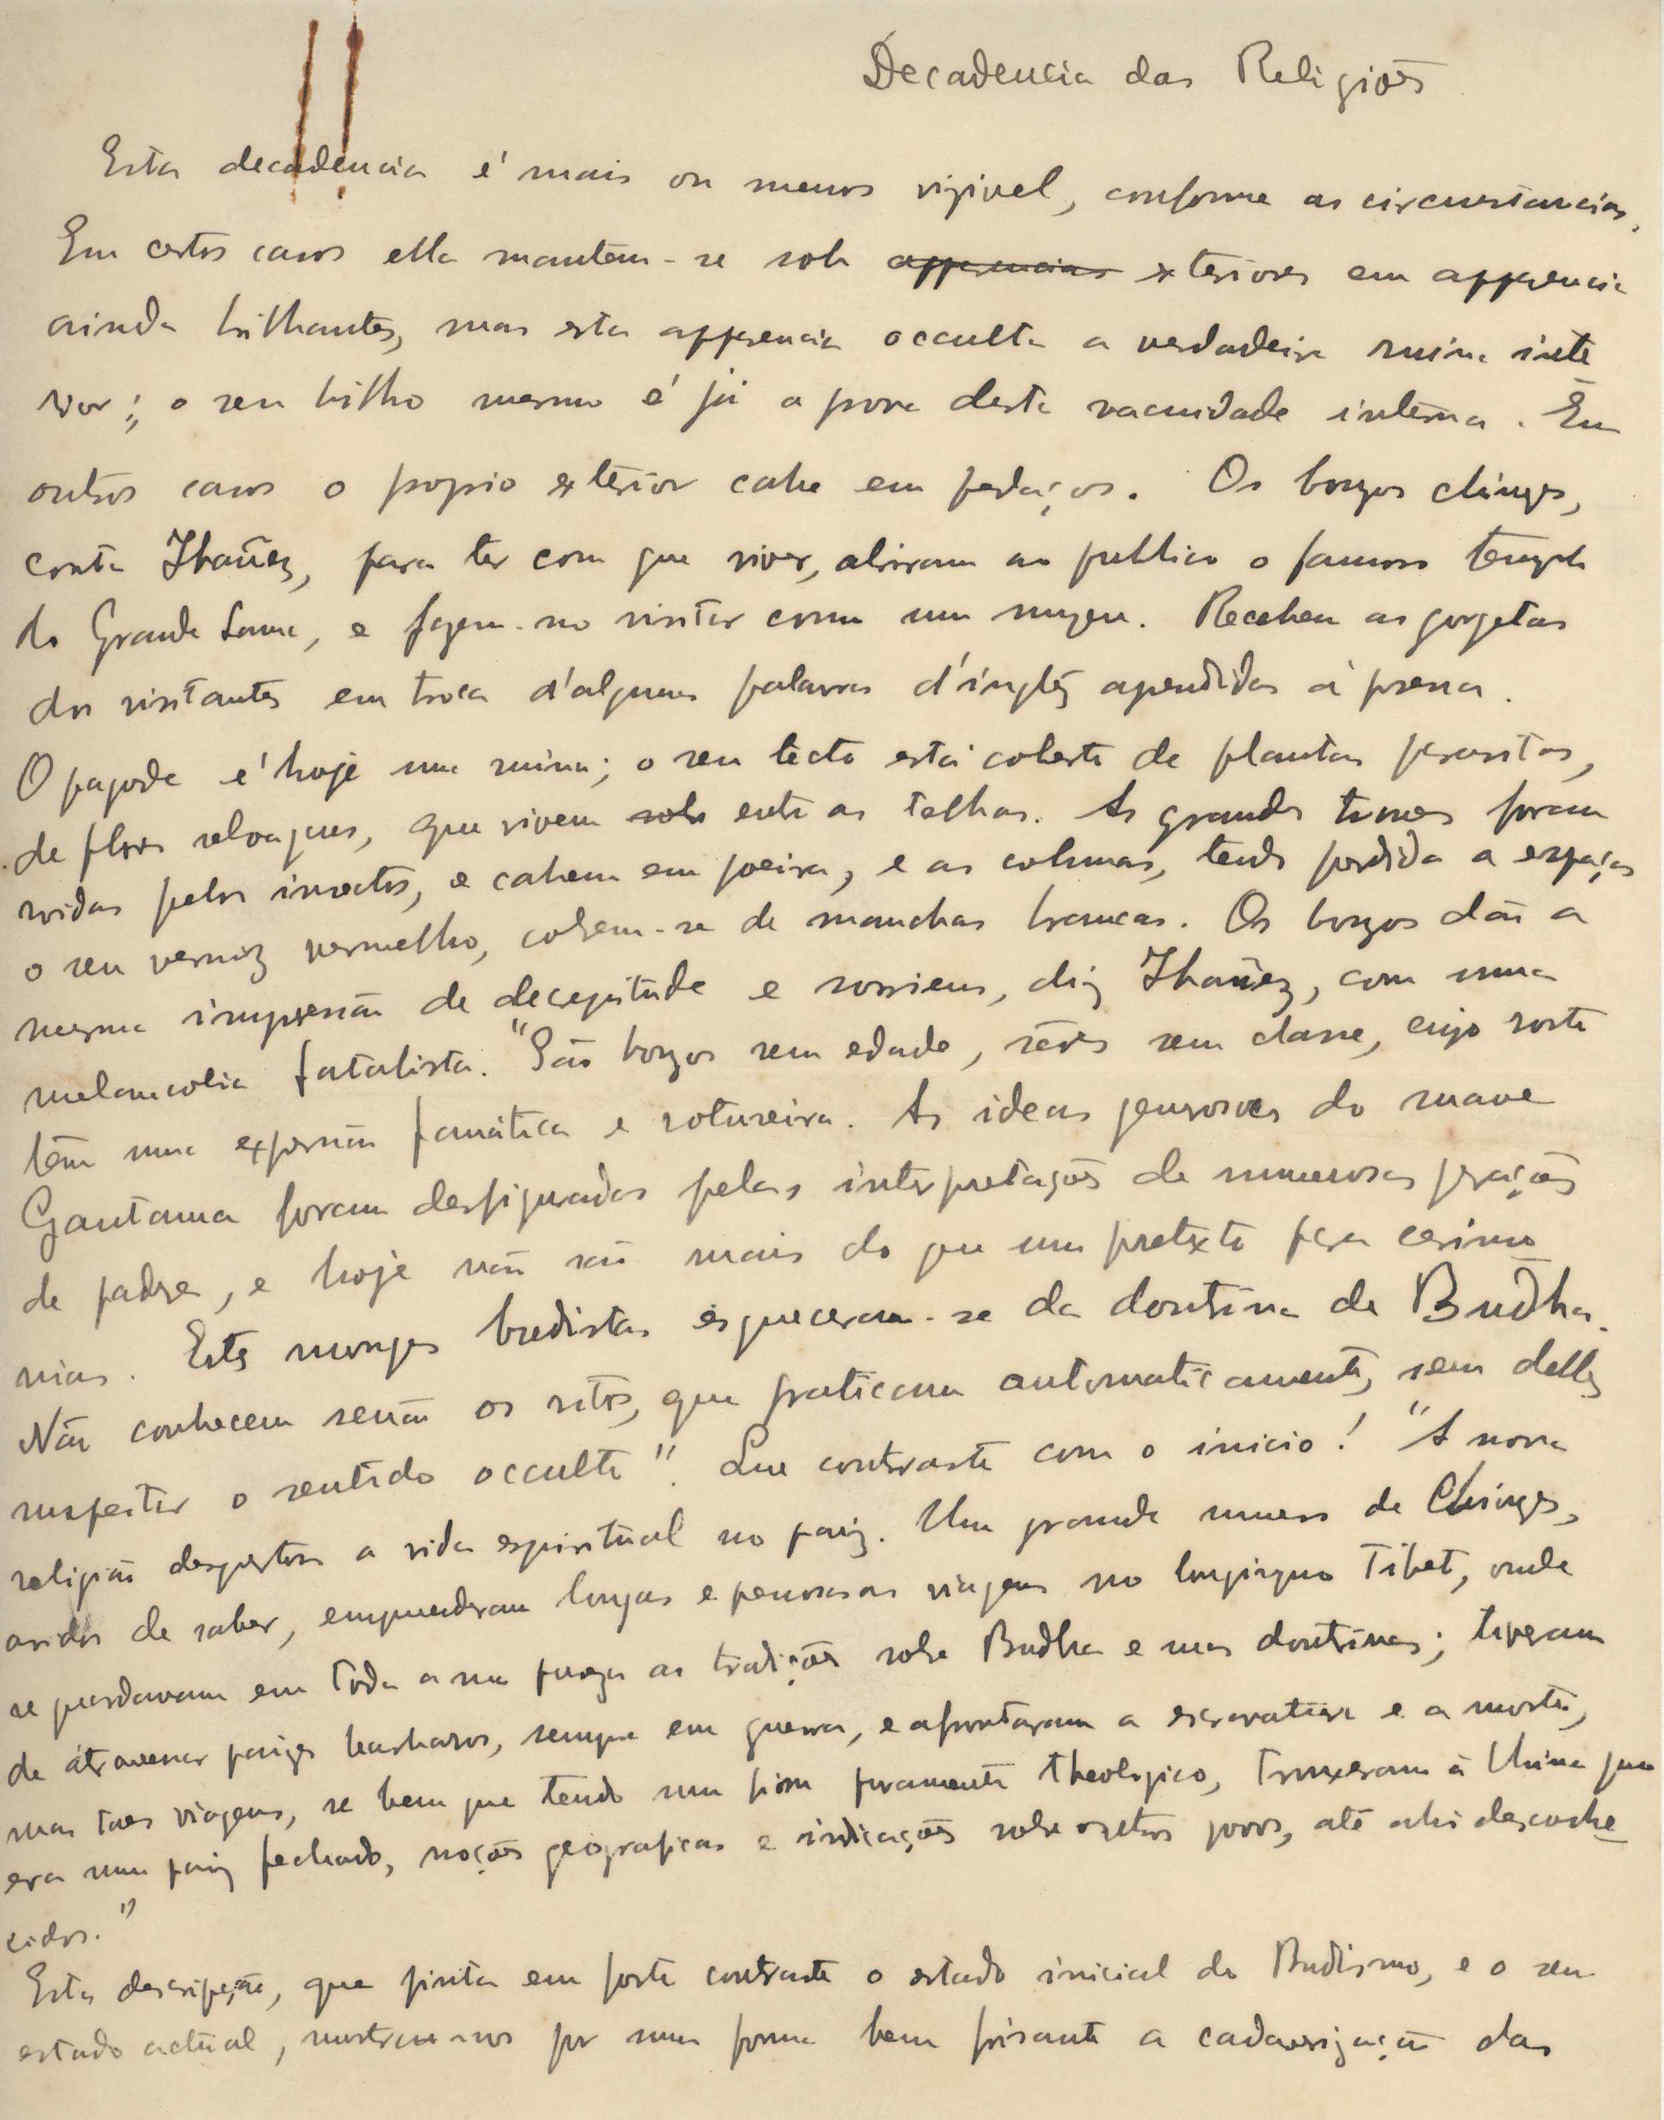 Decadencia das Religiões
Esta decadencia é mais ou menos vizivel, conforme as circunstancias.
Em certos casos ella mantem-se sob apparencias exteriores em apparencia
ainda brilhantes, mas esta apparencia occulta a verdadeira ruina inte
rior; o seu brilho mesmo é já a prova desta vacuidade interna. Em
outros casos o proprio exterior cahe em pedaços. Os bonzos chinezes,
conta Ibañez, para ter com que viver, abriram ao publico o famoso templo
do Grande Lama, e fazem-no visitar como um muzeu. Recebem as gorgetas
dos visitantes em troca d'algumas palavras d'inglêz aprendidas á pressa.
O pagode é hoje uma ruina; o seu tecto está coberto de plantas parasitas,
de flores selvagens, que vivem sobre entre as telhas. As grandes traves foram
roidas pelos insectos, e cahem em poeira, e as columnas, tendo perdido a espaços
o seu verniz vermelho, cobrem-se de manchas brancas. Os bonzos dão a
mesma impressão de decrepitude e sorriem, diz Ibañez, com uma
melancolia fatalista. "São bonzos sem edade, sêres sem classe, cujo rosto
têm uma expressão fanática e sotureira. As ideas generosas do suave
Gautama foram desfiguradas pelas interpretações de numerosas gerações
de padres, e hoje não são mais do que um pretexto para cerimo
nias. Estes monges budistas esqueceram-se da doutrina de Budha.
Não conhecem senão os ritos, que praticam automaticamente, sem delles
suspeitar o sentido occulto". Que contraste com o inicio! "A nova
religião despertou a vida espiritual no paiz. Um grande numero de Chinezes,
avidos de saber, emprenderam longas e penosas viagens no longinquo Tibet, onde
se guardavam em toda a sua pureza as tradições sobre Budha e suas doutrinas; tiveram
de atravessar paizes barbaros, sempre em guerra, e afrontaram a escravatura e a morte,
mas taes viagens, se bem que tendo um fim puramente theologico, trouxeram á China que
era um paiz fechado, noções geograficas e indicações sobre outros povos, até ahi desconhe
cidos."
Esta descripção, que pinta em forte contraste o estado inicial do Budismo, e o seu
estado actual, mostram-nos por uma forma bem frisante a cadaverização das